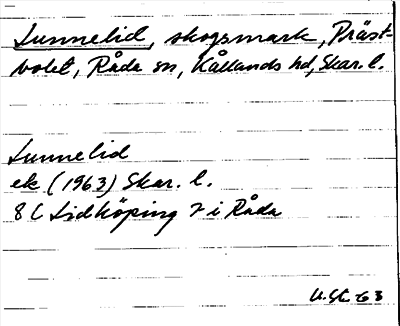 Sunnelid, skogsmark, Präst-
bolet, Råda sn, Kållands hd, Skar. l.
Sunnelid
ek (1963) Skar. l.
8 C Lidköping 7 i Råda
U. St. 63